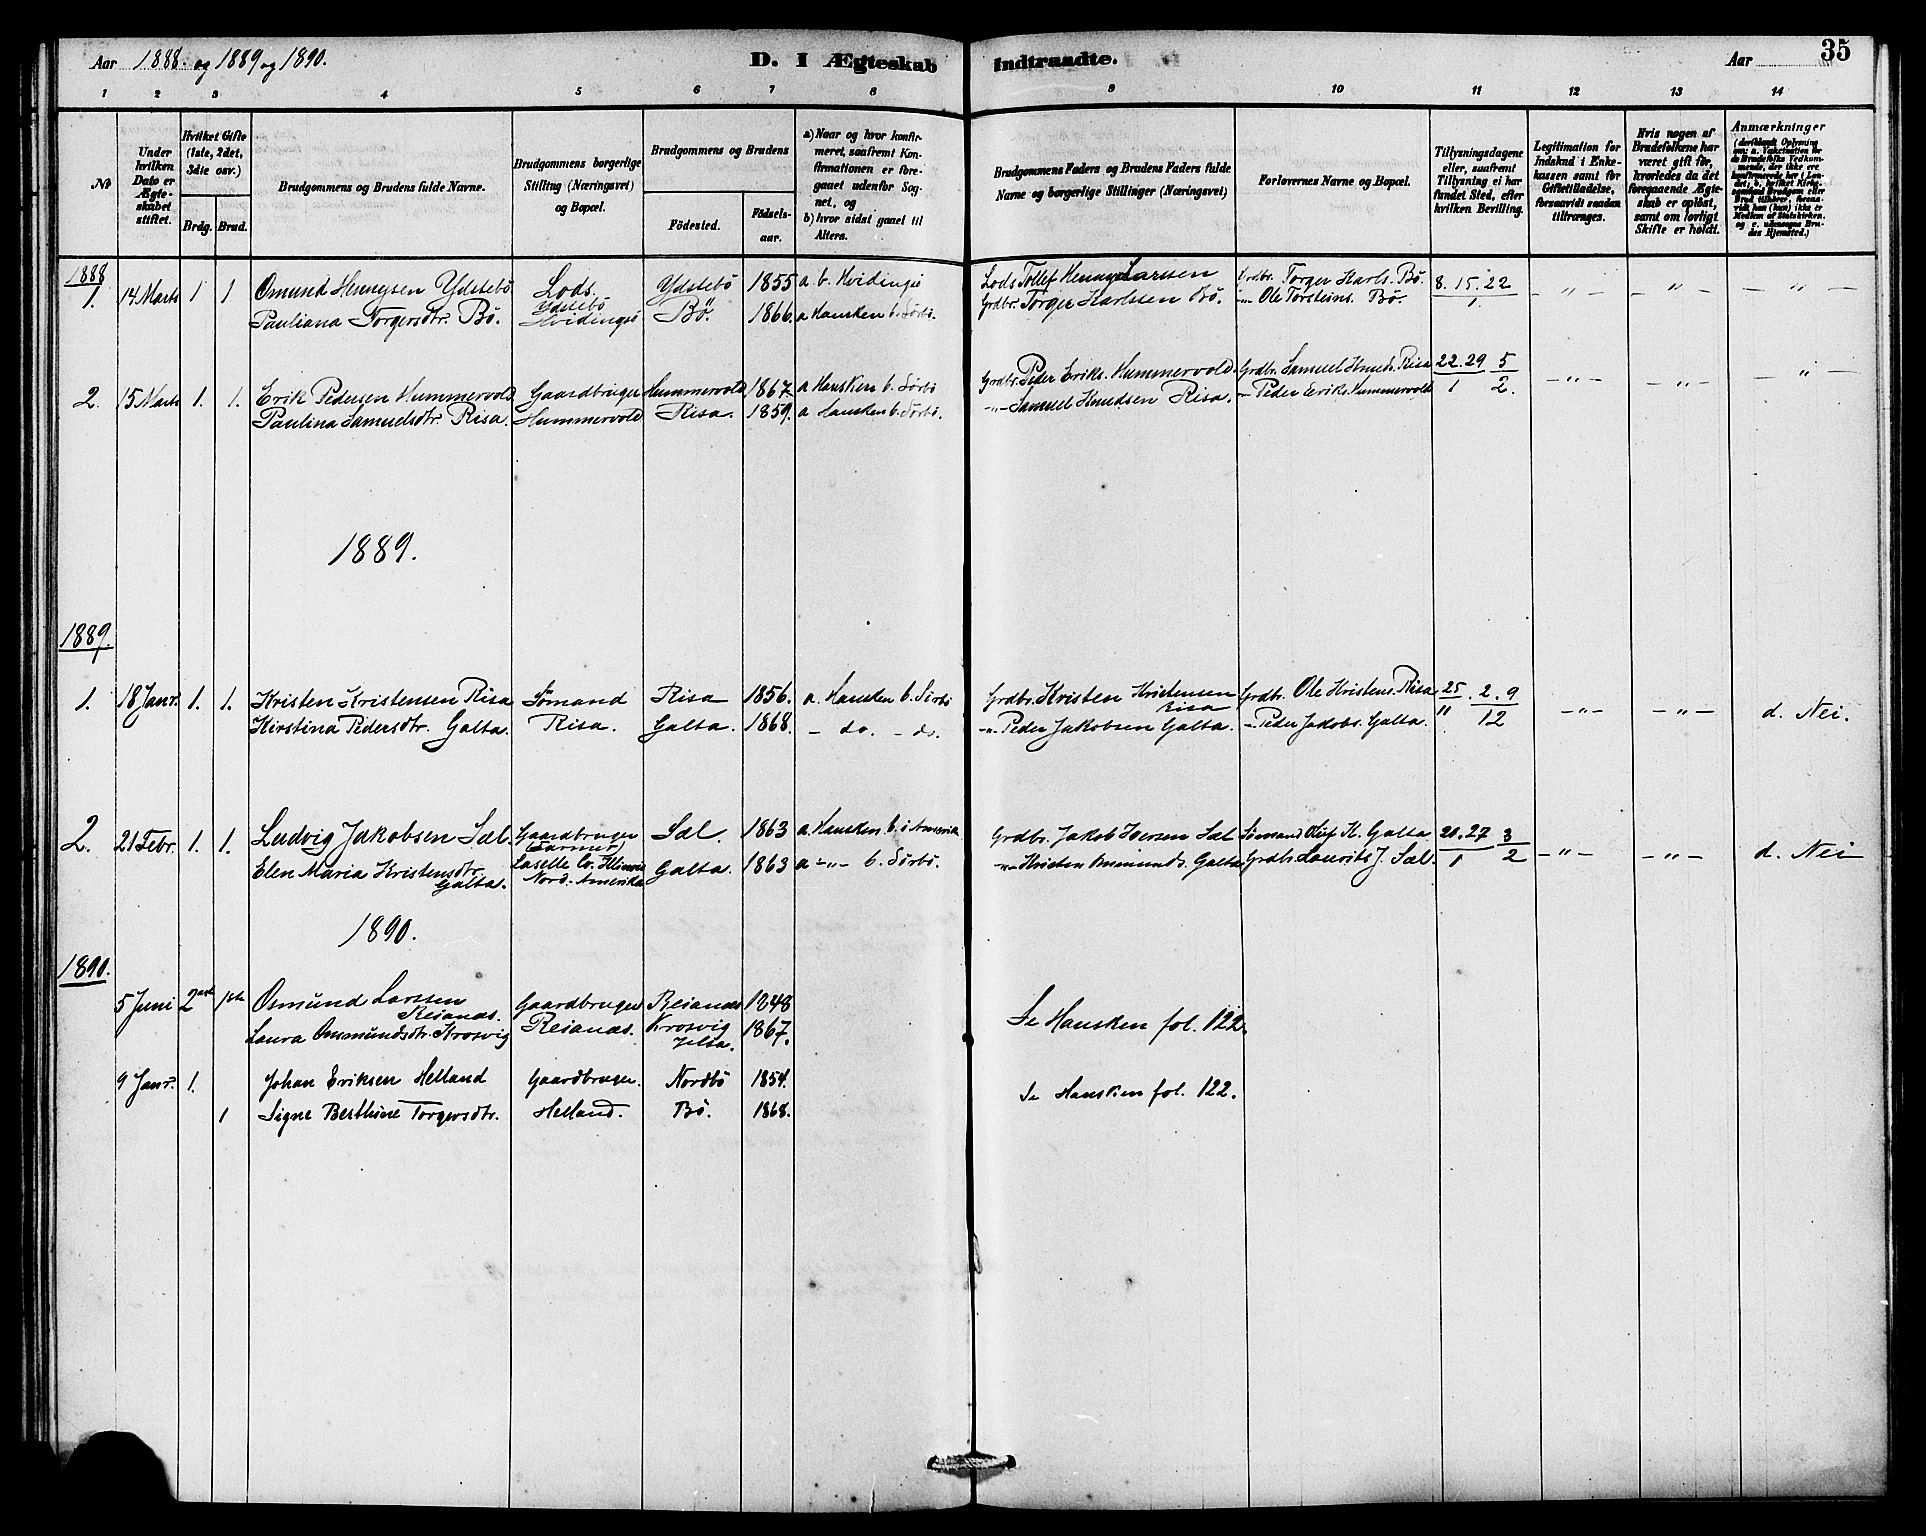 Aar 1888. og 1889 og 1890.
D. I Ægteskab Indtraadte.
Aar
35
1 2 3 4 5 6 7 8 9 10 11 12 13 14
No
Under hvilken Dato er Ægteskabet stiftet.
Hvilket Gifte (1ste, 2det, 3die osv.)
Brdg. Brud.
Brudgommens og Brudens fulde Navne.
Brudgommens borgerlige Stilling (Næringsvei) og Bopæl.
Brudgommens og Brudens
Födested. Födsels-aar.
a) Naar og hvor konfirmeret, saafremt Konfirmationen er foregaaet udenfor Sognet, og
b) hvor sidst gaaet til Alters.
Brudgommens Faders og Brudens Faders fulde Navne og borgerlige Stillinger (Næringsvei)
Forlovernes Navne og Bopæl.
Tillysningsdagene eller, saafremt Tillysning ei har fundet Sted, efter hvilken Bevilling.
Legitimation for Indskud i Enkekassen samt for Giftetilladelse, forsaavidt saadan tiltrænges.
Hvis nogen af Brudefolkene har været gift för, hvorledes da det foregaaende Ægteskab er oplöst, samt om lovligt Skifte er holdt.
Anmærkninger
1888
1. 14 Marts 1 1 Osmund Hennysen Ydstebö Lods. Ydstebö 1855 a. b. Hvidingsö Lods Tollef Henny Larssen Grdbr. Torger Karls. Bö. 8. 15. 22 -"- -"- -"-
Pauliana Torgersdtr. Bö. Ydstebö Hvidingsö Bö. 1866. a Hausken b. Sörbö. Grdbr. Torger Karlssen Bö. -"- Ole Torsteins. Bö. 1.
2. 15 Marts 1. 1. Erik Pedersen Hummervold Gaardbruger Hummervold 1867. a Hausken b. Sörbö Grdbr. Peder Eriks. Hummervold. Grdbr. Samuel Knuds. Risa 22. 29 5 -"- -"- -"-
Paulina Samuelsdtr. Risa. Hummervold Risa. 1859. a Hausken b. Sörbö. -"- Samuel Knudsen Risa. -"- Peder Eriks. Hummervold 1 2.
1889.
1889.
1. 18 Janr. 1. 1. Kristen Kristensen Risa Sömand Risa 1856. a. Hausken b. Sörbö Grdbr. Kristen Kristensen Risa Grdbr. Ole Kristens. Risa 25 . 2. 9 -"- -"- d. Nei.
Kirstina Pedersdtr. Galta. Risa. Galta. 1868. - do. - do. -"- Peder Jakobsen Galta. -"- Peder Jakobs. Galta. 11 12
2. 21 Febr. 1. 1. Ludvig Jakobsen Sæl. Gaardbruger (Farmer) Sæl. 1863 a. Hausken b. i Amerika Grdbr. Jakob Iversen Sæl Sömand K. Galta 20. 27 3 -"- -"- d. Nei
Elen Maria Kristensdtr. Galta. Laselle Co. Illinois Nord-Amerika Galta. 1863 a -"- b. Sörbö. -"- Kristen Osmunds. Galta Grdbr. Lauvits J. Sæl. 1 2
1890.
1890.
5 Juni 2den 1ste Osmund Larssen Reianæs. Gaardbruger Reianæs 1848 Se Hausken fol. 122.
Laura Osmundsdtr. Krosvig Reianæs. Krosvig Jelsa. 1867.
9 Janr. 1. Johan Eriksen Helland Gaardbruger. Nordbö 1854. Se Hausken fol. 122.
1 Signe Berthine Torgersdtr. Helland. Bö. 1868.